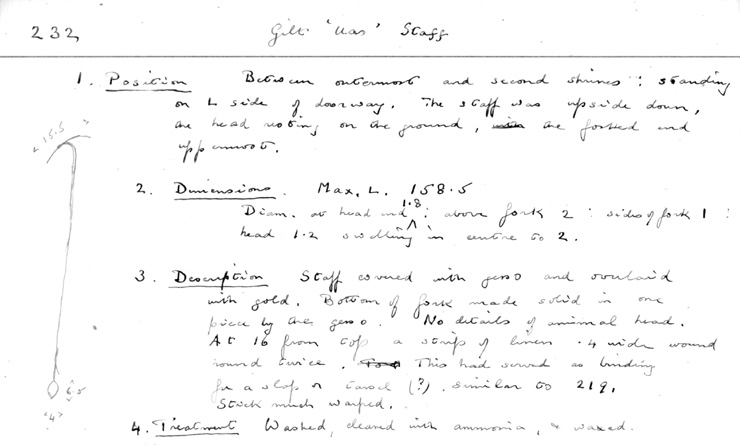 232
Gilt 'Uas' Staff
1. Position Between outermost and second shrines: standing
on L side of doorway. The staff was upside down,
the head resting on the ground, the forked end
uppermost.
15.5
2. Dimensions. Max. L. 158.5
1.8
Diam. at head end : above fork 2 : sides of fork 1 :
head 1.2 swelling in centre to 2.
3. Description Staff covered with gesso and overlaid
with gold. Bottom of fork made solid in one
piece by the gesso. No details of animal head.
At 16 from top a strip of linen .4 wide wound
round twice. This had served as binding
for a stop or tassel (?). similar to 219.
Stick much warped.
4
4. Treatment Washed, cleaned with ammonia, & waxed.